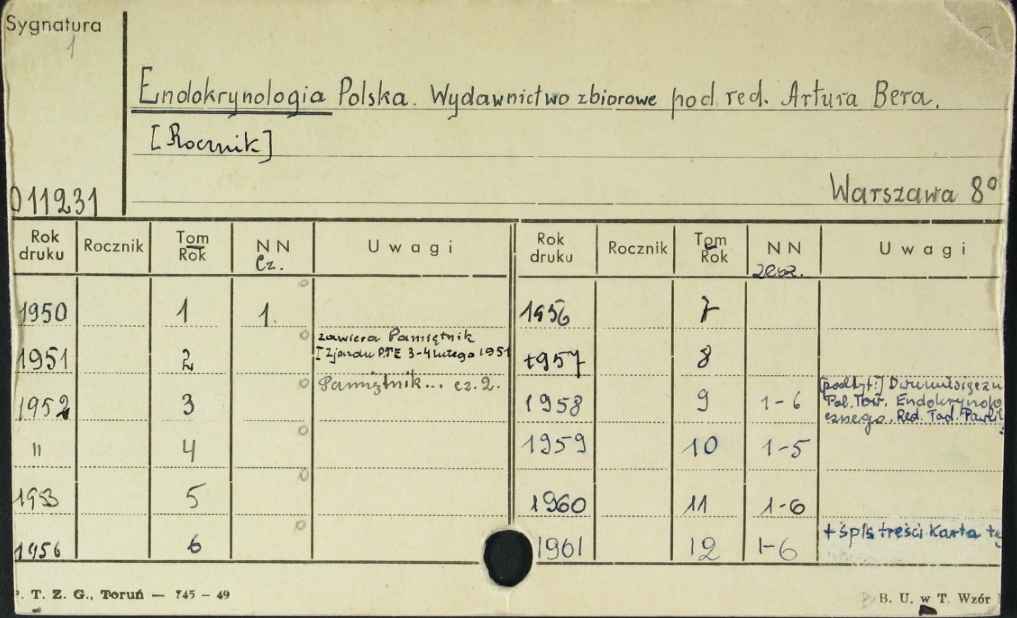 Sygnatura
1
Endokrynologia Polska. Wydawnictwo zbiorowe pod red. Artura Bera.
[Rocznik]
011231
Warszawa 8°
Rok druku Rocznik Tom Rok NN Cz. Uwagi Rok druku Rocznik Tom Rok NN zesz. Uwagi
1950 1 1. 1956 7
1951 2 zawiera Pamiętnik I Zjazdu PTE 3-4 lutego 1951 1957 8
1952 3 Pamiętnik... cz. 2. 1958 9 1-6 [podtyt:] Dwumiesięczn Pol. Tow. Endokrynolo cznego. Red. Tad.
" 4 1959 10 1-5
1953 5 1960 11 1-6
1956 6 1961 12 1-6 + śpis treści Karta
P. T. Z. G., Toruń — 745 – 49
B. U. w T. Wzór